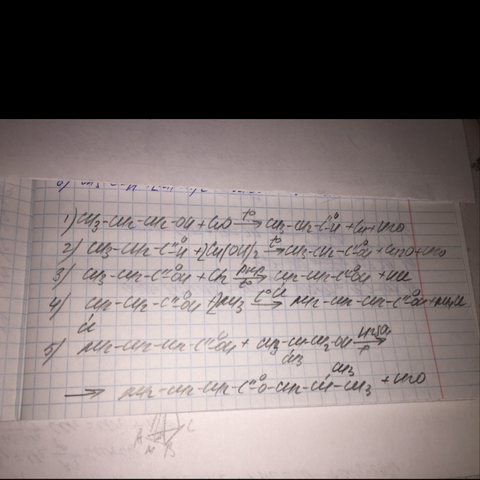 1) CH3-CH2-CH2-OH + CuO t° → CH3-CH2-C=O-H + Cu + H2O
2) CH3-CH2-C=O-H + 2Cu(OH)2 t° → CH3-CH2-C=O-OH + Cu2O + H2O
3) CH3-CH2-C=O-OH + Cl2 → CH2-CH2-C=O-OH + HCl
4) CH2-CH2-C=O-OH + 2NH3 t° → NH2-CH2-CH2-C=O-OH + NH4Cl
Cl
5) NH2-CH2-CH2-C=O-OH + CH3-CH-CH2-OH H2SO4 →
CH3 CH3
→ NH2-CH2-CH2-C=O-O-CH2-CH-CH3 + H2O
A B C